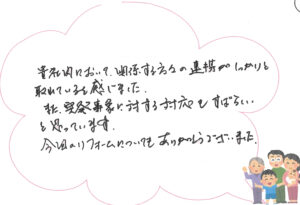 貴社内において、関係する方々の連携がしっかりと
取れていると感じました。
また、緊急事案に対する対応もすばらしい
と思っています。
今回のリフォームについてもありがとうございました。